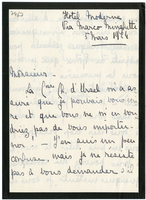 Hotel Moderne
Via Marco Minghetti
5 Mars 1924
Monsieur –
La Csse Ch. d'Ursel m'a as
suré que je pouvais vous
et que vous ne m'en vou
driez pas de vous importu
ner – J'en suis un peu
confuse, mais je ne résiste
pas à vous demander si